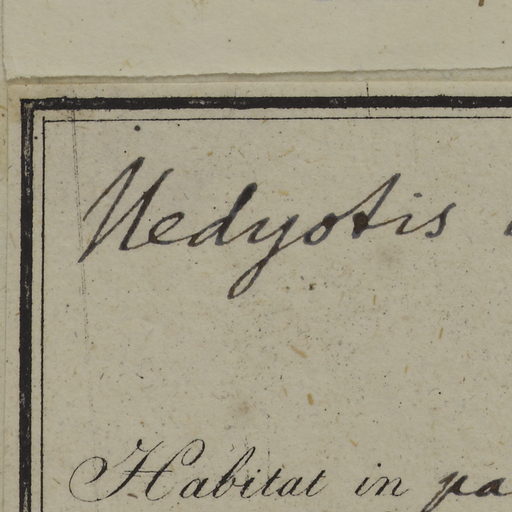 Hedyotis
Habitat in pa